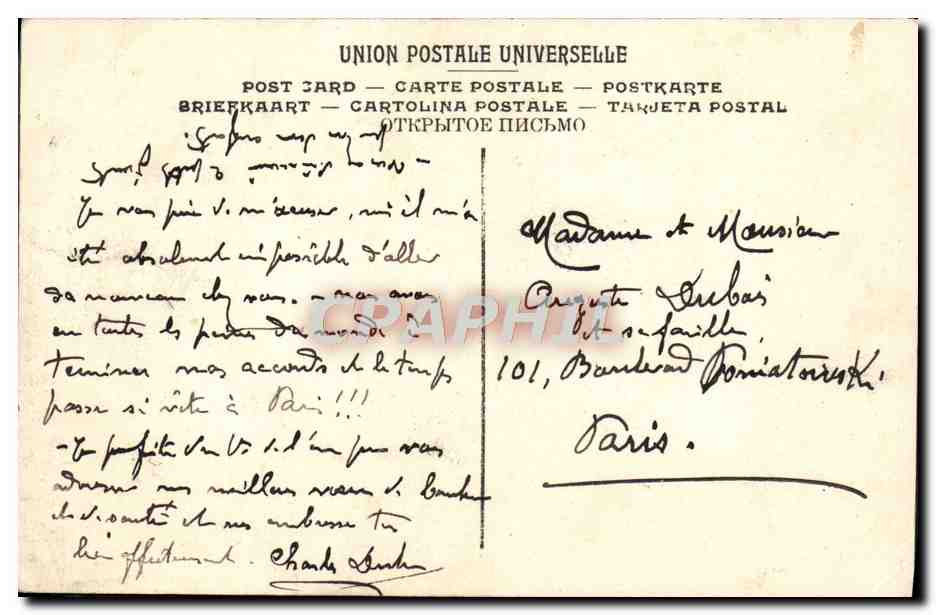 UNION POSTALE UNIVERSELLE
POST CARD — CARTE POSTALE — POSTKARTE
BRIEFKAART — CARTOLINA POSTALE — TARJETA POSTAL
ОТКРЫТОЕ ПИСЬМО
Je vous prie de m'excuser, mais il m'a
été absolument impossible d'aller
de nouveau chez vous. - nous avons
eu toutes les peines du monde à
terminer nos accords et le temps
passe si vite à Paris!!!
- Je profite du de l'an pour vous
adresser nos meilleurs vœux de bonheur
et de santé et vous embrasse très
bien affectueusement. Charles
Madame et Monsieur
Auguste Dubois
et sa famille
101, Boulevard Poniatowski
Paris.
CPAPHIL